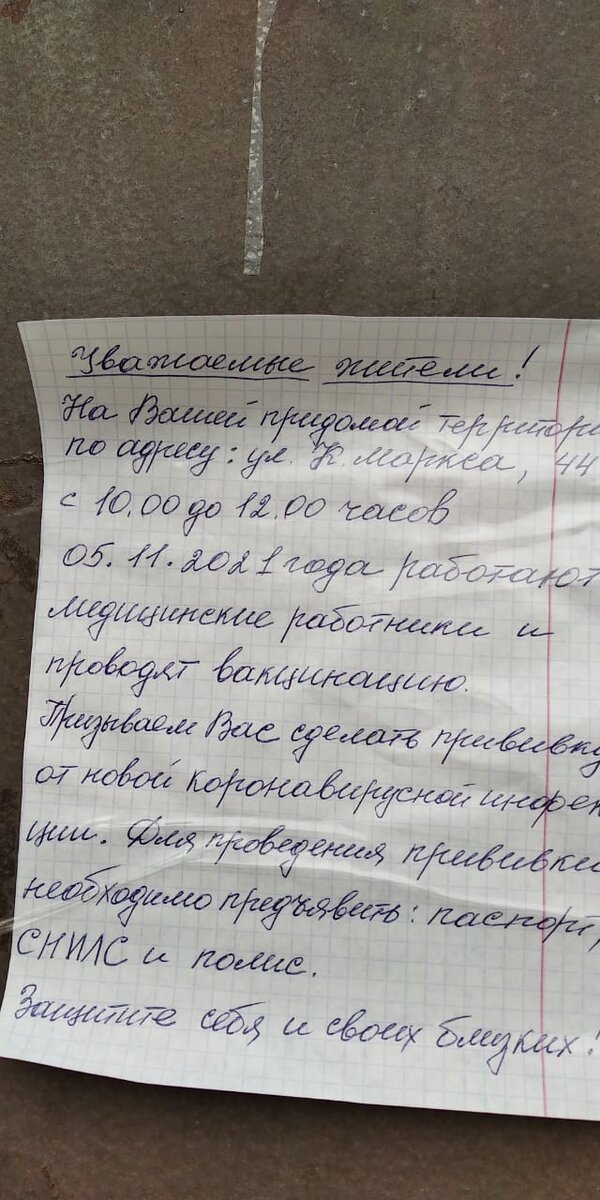 Уважаемые жители!
На Вашей придомой территори
по адресу: ул. К. Маркса, 44
с 10.00 до 12.00 часов
05.11.2021 года работают
медицинские работники и
проводят вакцинацию.
Призываем Вас сделать прививку
от новой коронавирусной инфек
ции. Для проведения прививки
необходимо предъявить: паспорт,
СНИЛС и полис.
Защитите себя и своих близких!